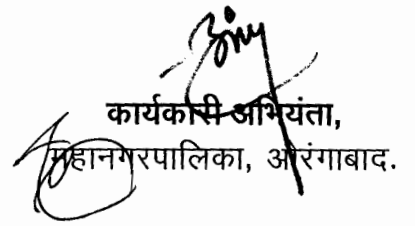 कार्यकारी अभियंता,
महानगरपालिका, औरंगाबाद.